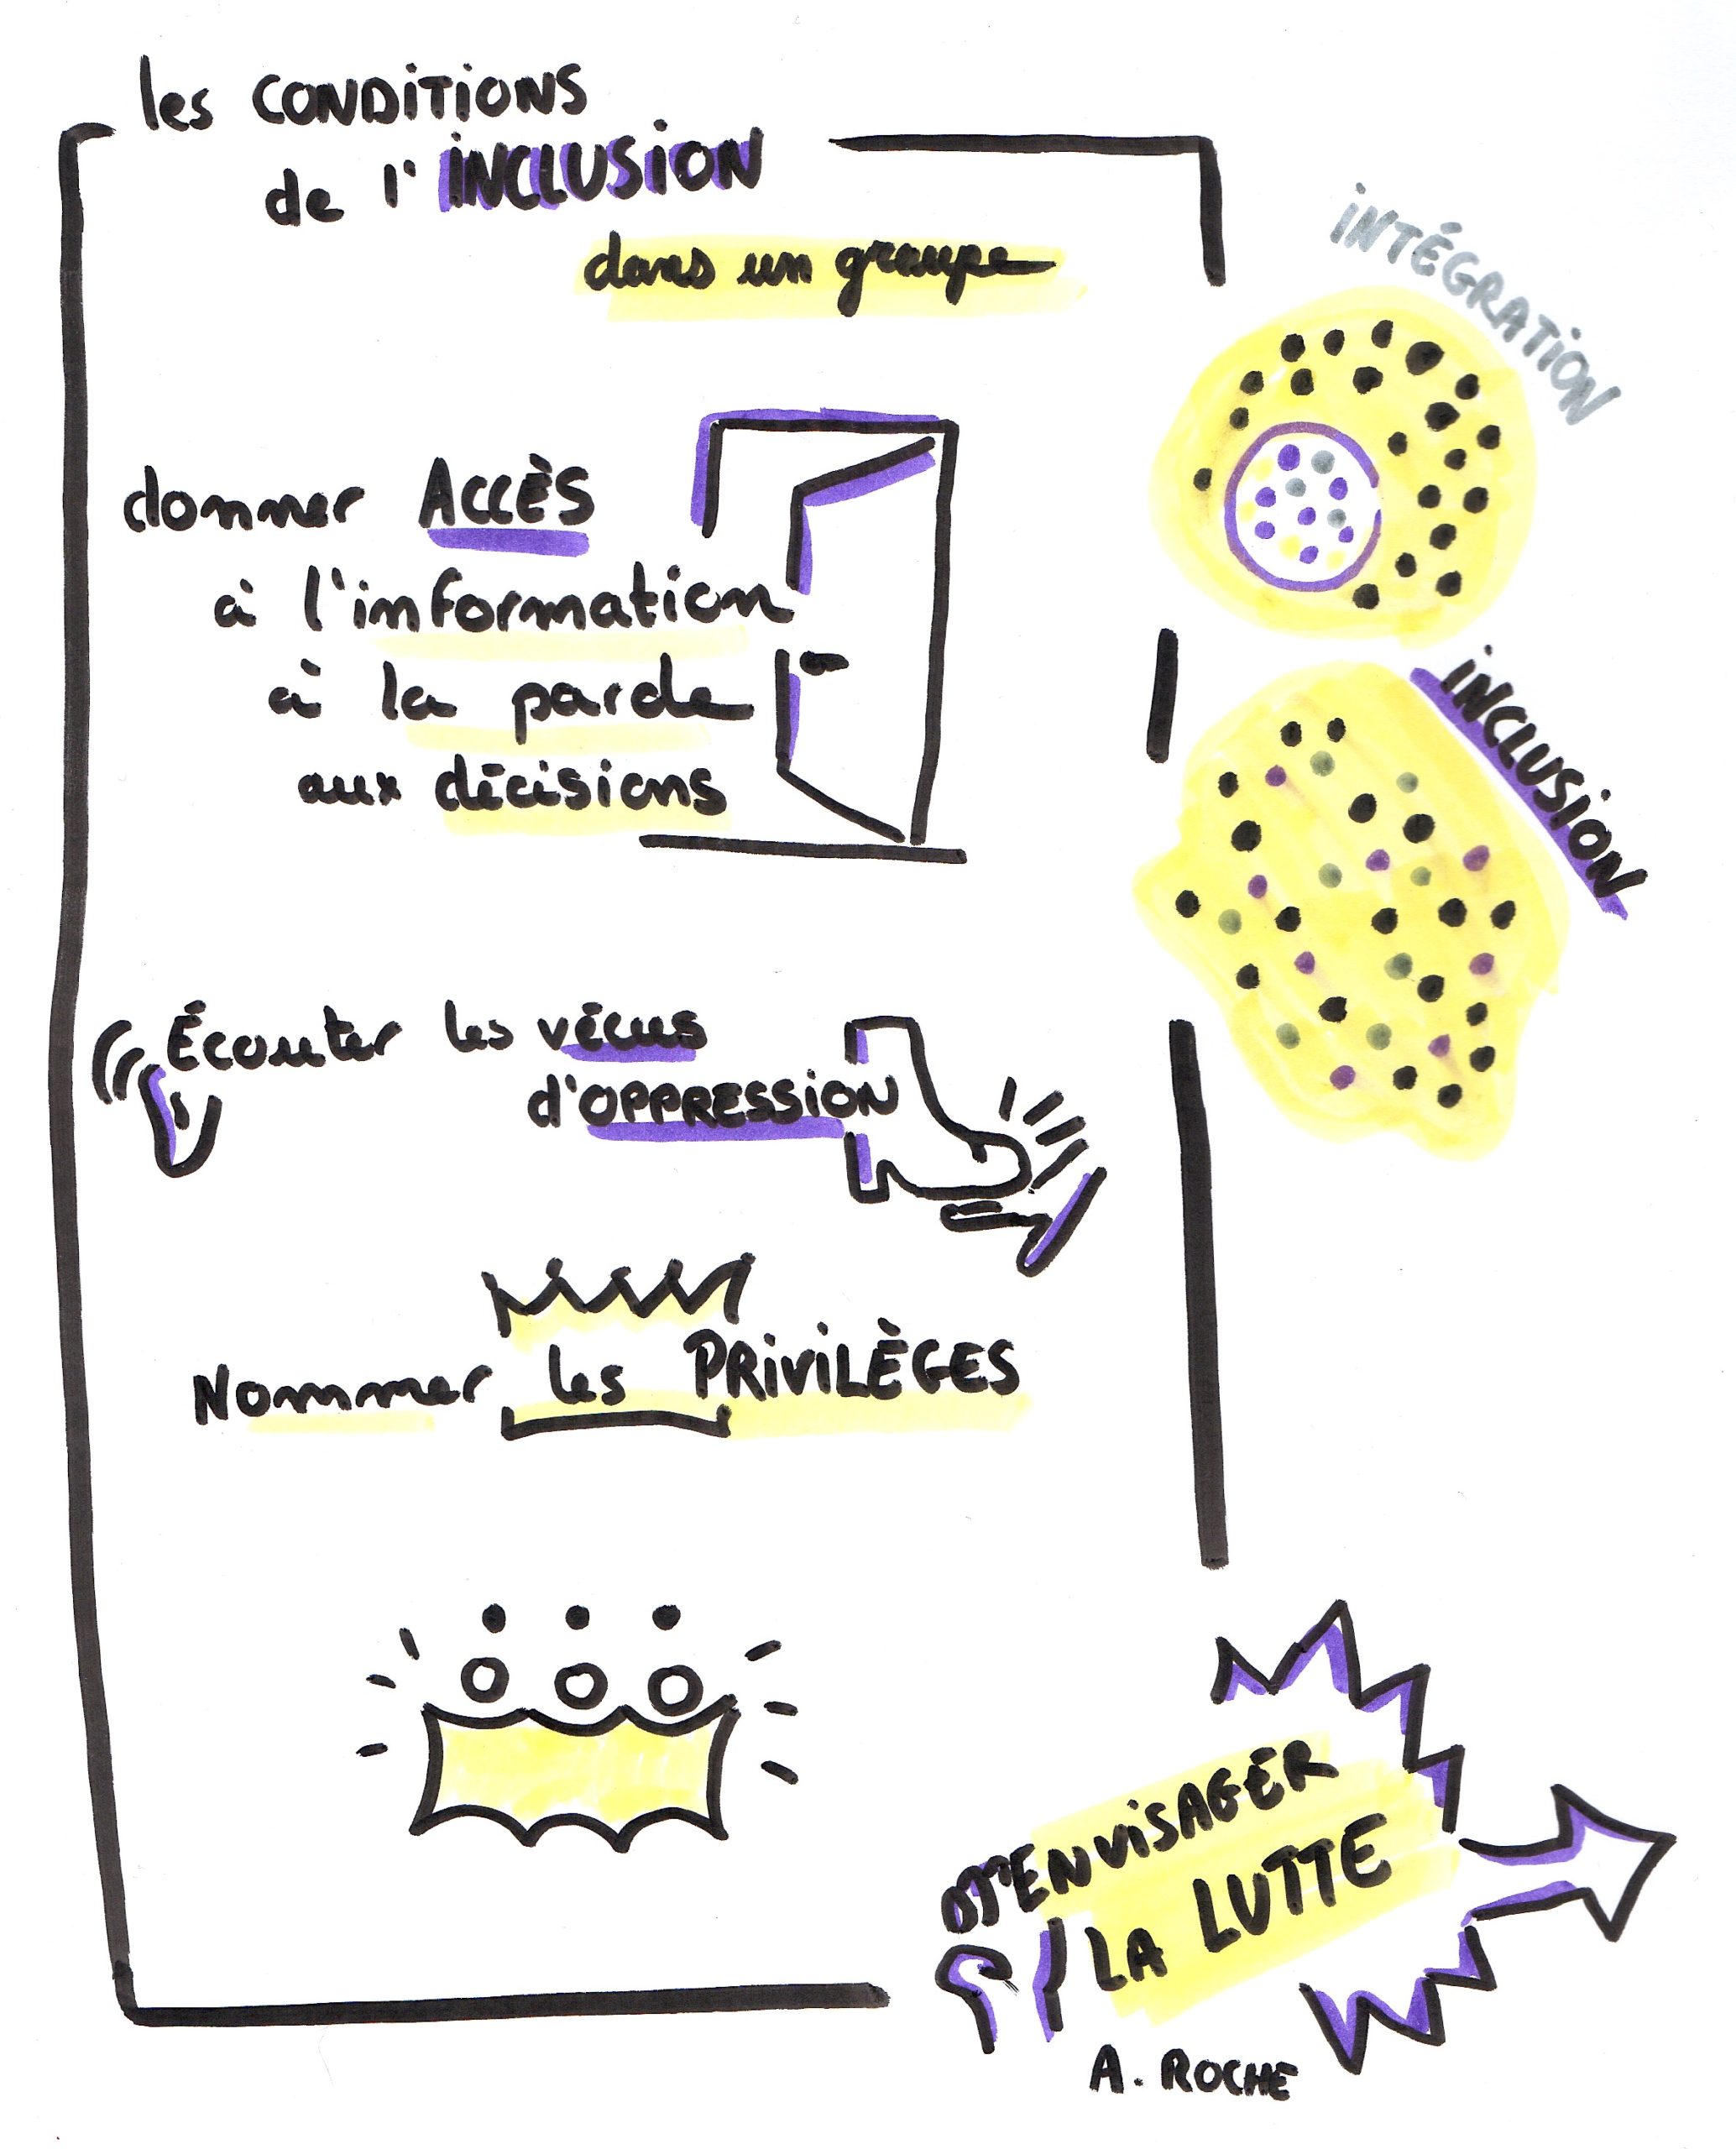 les CONDITIONS
de l'INCLUSION
dans un groupe
INTÉGRATION
donner ACCÈS
à l'information
à la parole
aux décisions
INCLUSION
Écouter les vécus
d'OPPRESSION
Nommer les PRIVILÈGES
ENVISAGER
LA LUTTE
A. ROCHE